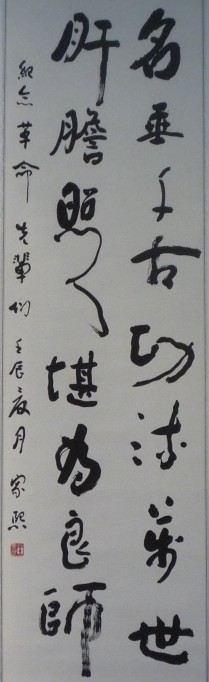 名垂千古功沛萬世
肝膽照人堪為良師
紀念革命先輩们 壬辰夏月 家熙